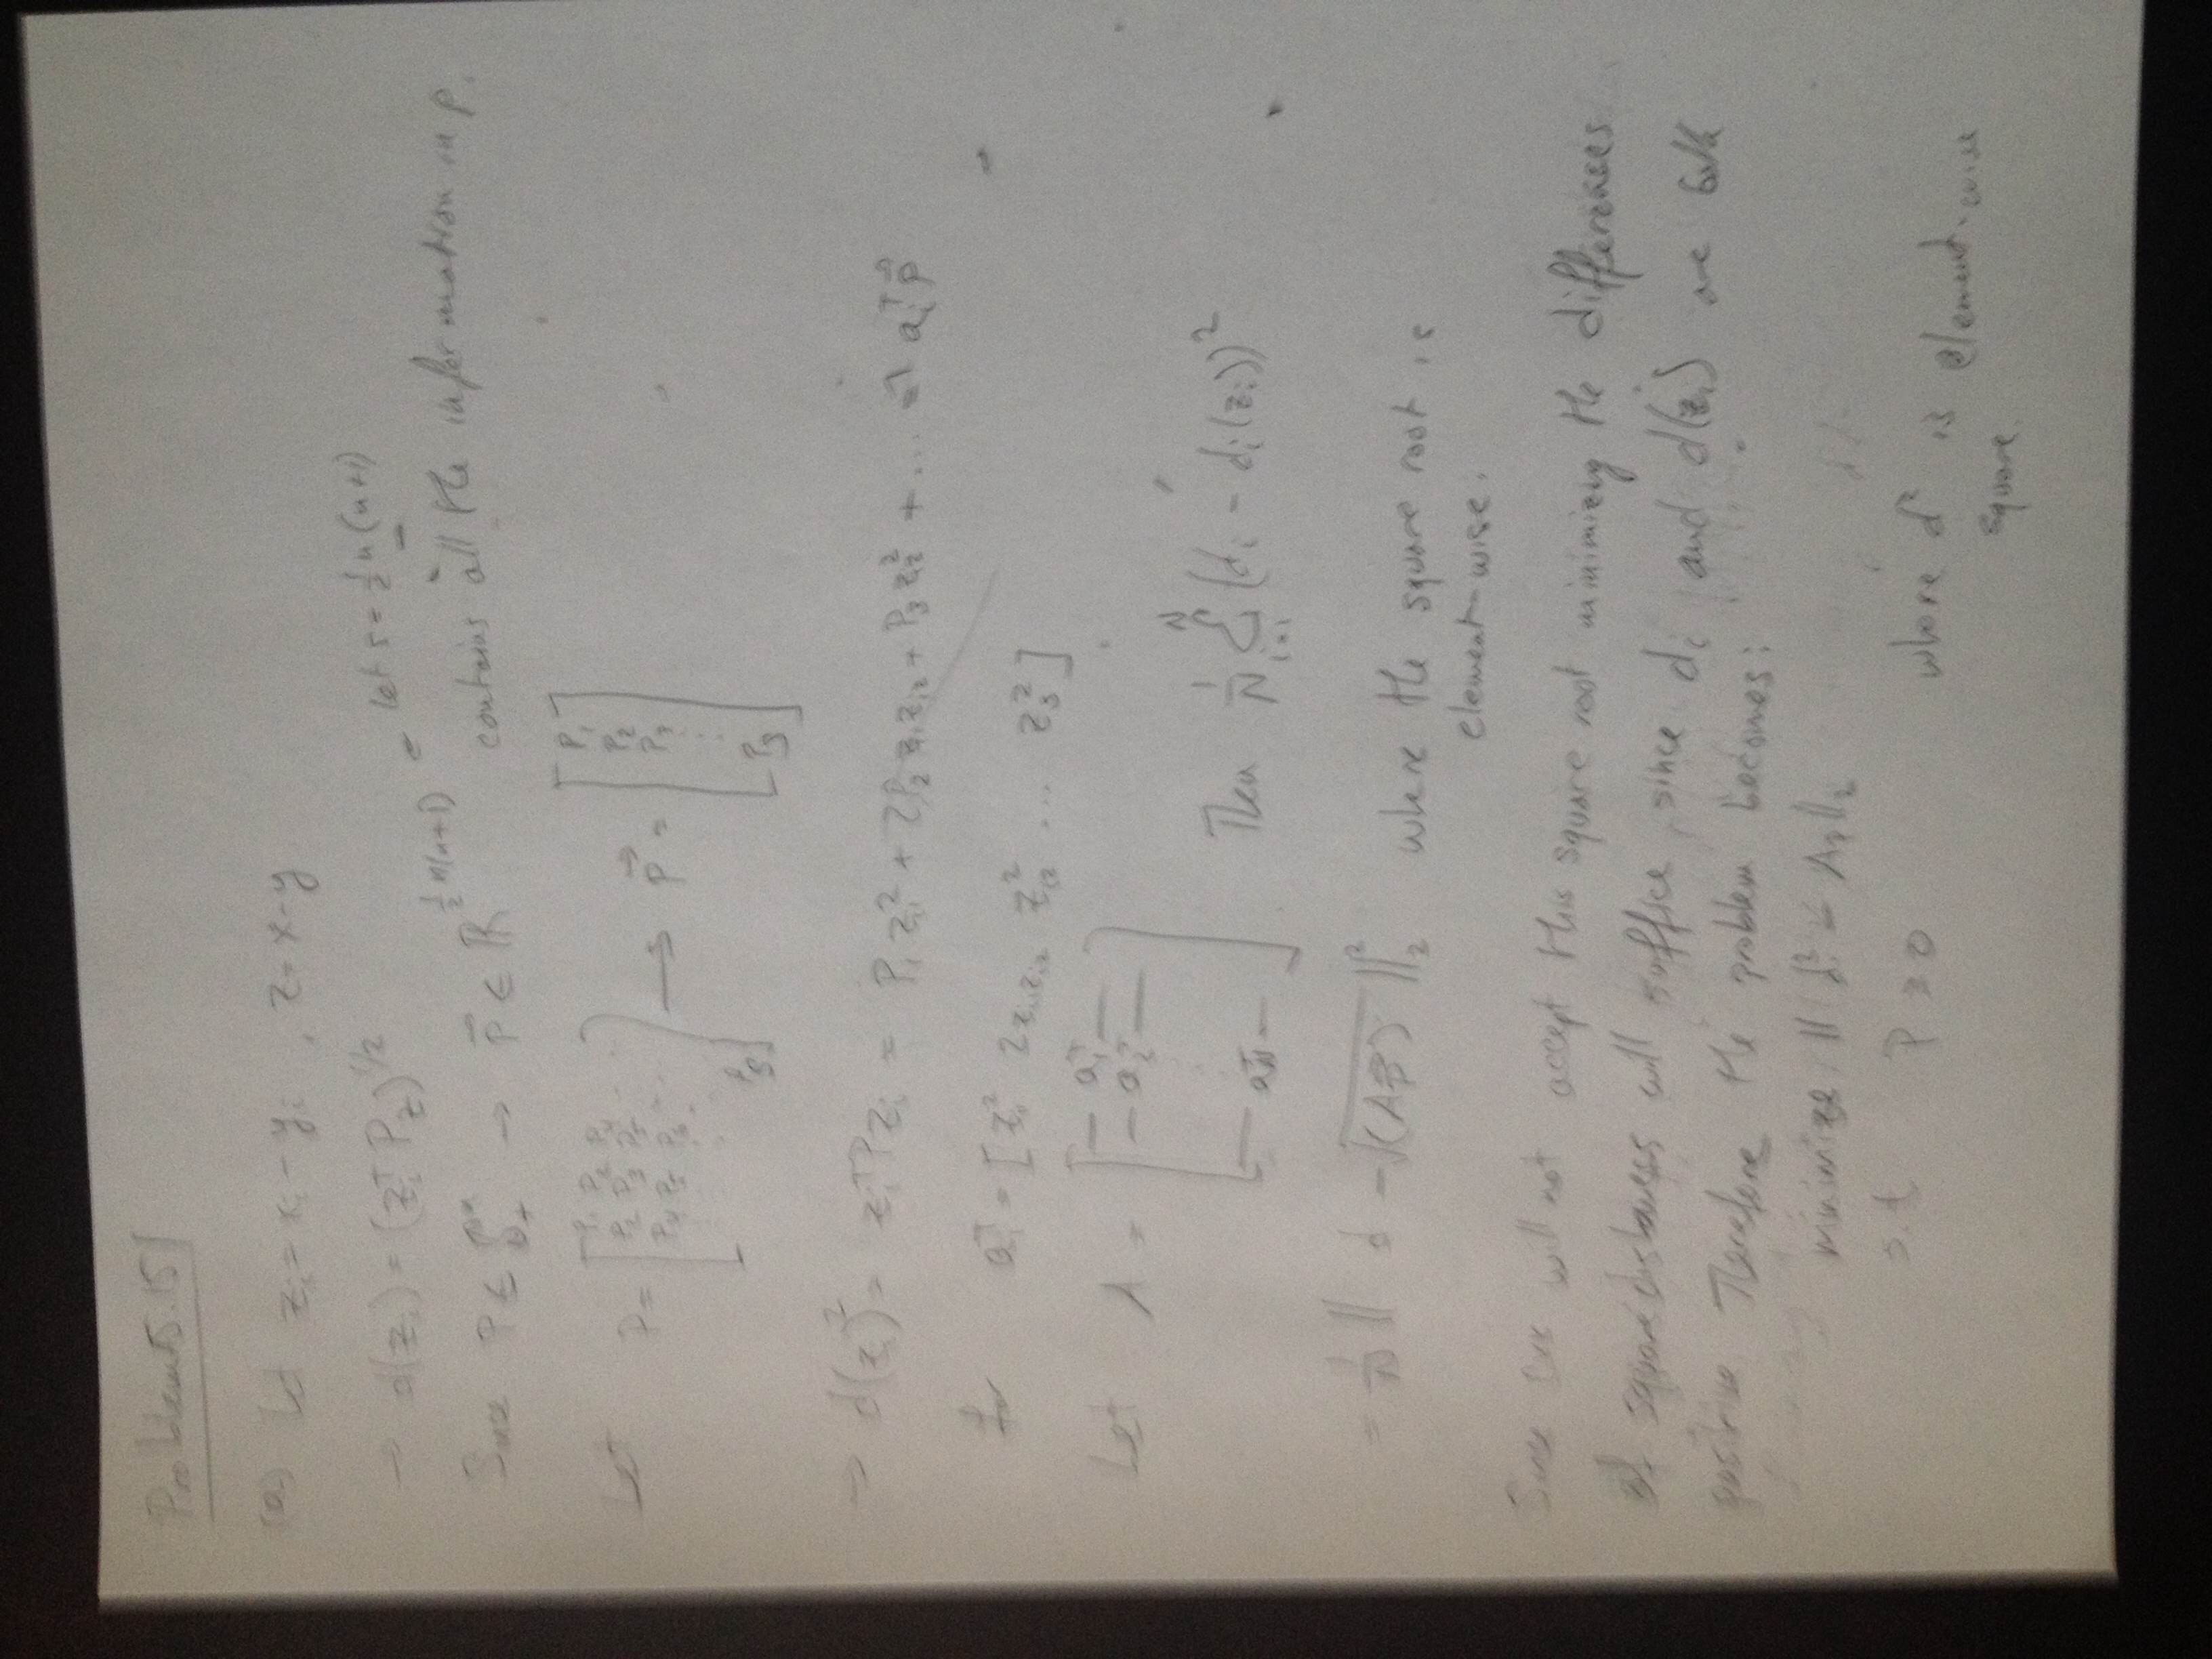 Problem 5.15
(a) Let zᵢ = xᵢ - yᵢ , z = x-y
→ d(zᵢ) = (zᵢᵀ P z)^1/2
- Let s = ½ n(n+1)
Since P ∈ S₊ⁿ → p⃗ ∈ ℝ^½n(n+1) contains all the information in p.
Let P = [ P₁ P₂ P₄ ... → p⃗ = [ P₁
P₂ P₃ P₅ ... P₂
P₄ P₅ P₆ ... P₃
...
Pₛ ] Pₛ ]
→ d(zᵢ)² = zᵢᵀPzᵢ = P₁zᵢ₁² + 2P₂zᵢ₁zᵢ₂ + P₃zᵢ₂² + ... = aᵢᵀp⃗
for aᵢᵀ = [zᵢ₁² 2zᵢ₁zᵢ₂ zᵢ₂² ... zₛ²]
Let A = [ — a₁ᵀ —
— a₂ᵀ —
⋮
— a_Nᵀ — ] Then 1/N Σᵢ₌₁ᴺ (dᵢ - dᵢ(zᵢ))²
= 1/N || d - √(Ap⃗) ||₂² where the square root is
element-wise.
Since cvx will not accept this square root minimizing the differences
of square distances will suffice, since dᵢ and d(zᵢ) are both
positive. Therefore the problem becomes:
minimize || d² - Ap ||₂
s.t P ≥ 0 where d² is element-wise
square.